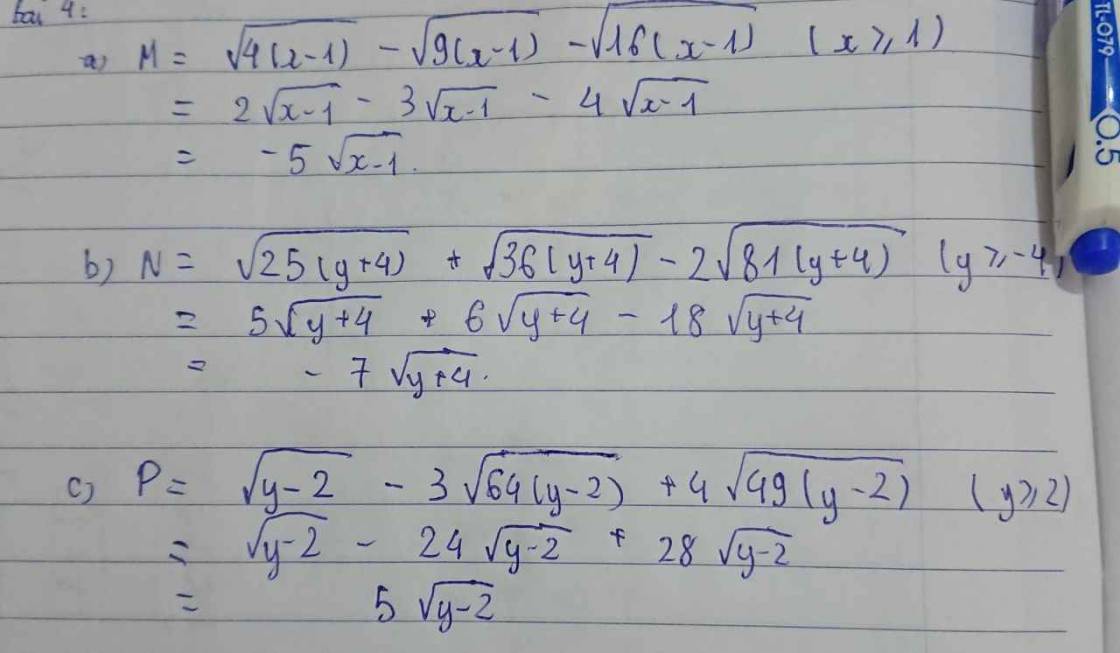 bài 4:
a) M = √4(x-1) - √9(x-1) - √16(x-1) (x ⩾ 1)
= 2√x-1 - 3√x-1 - 4√x-1
= -5√x-1.
b) N = √25(y+4) + √36(y+4) - 2√81(y+4) (y ⩾ -4)
= 5√y+4 + 6√y+4 - 18√y+4
= -7√y+4.
c) P = √y-2 - 3√64(y-2) + 4√49(y-2) (y ⩾ 2)
= √y-2 - 24√y-2 + 28√y-2
= 5√y-2
TL-079
0.5